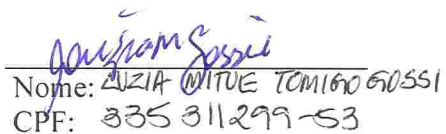 Nome: LUZIA MITUE TOMIGO GOSSI
CPF: 335 311299-53